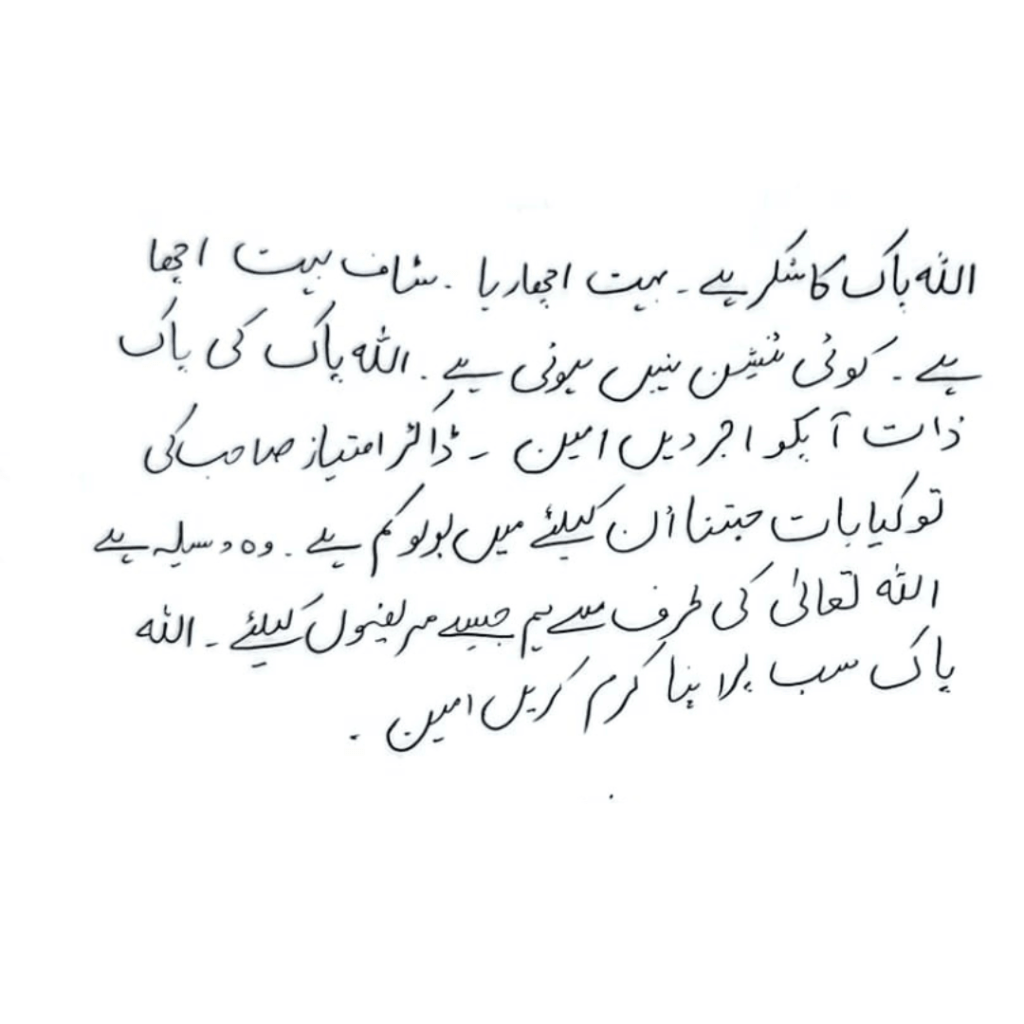 اللہ پاک کا شکر ہے۔ بہت اچھا رہا۔ سٹاف بہت اچھا
ہے۔ کوئی ٹینشن نہیں ہوئی ہے۔ اللہ پاک کی پاک
ذات آپکو اجر دیں امین ۔ ڈاکٹر امتیاز صاحب کی
تو کیا بات جتنا اُن کیلئے میں بولو کم ہے۔ وہ وسیلہ ہے
اللہ تعالیٰ کی طرف سے ہم جیسے مریضوں کیلئے۔ اللہ
پاک سب پر اپنا کرم کریں امین ۔